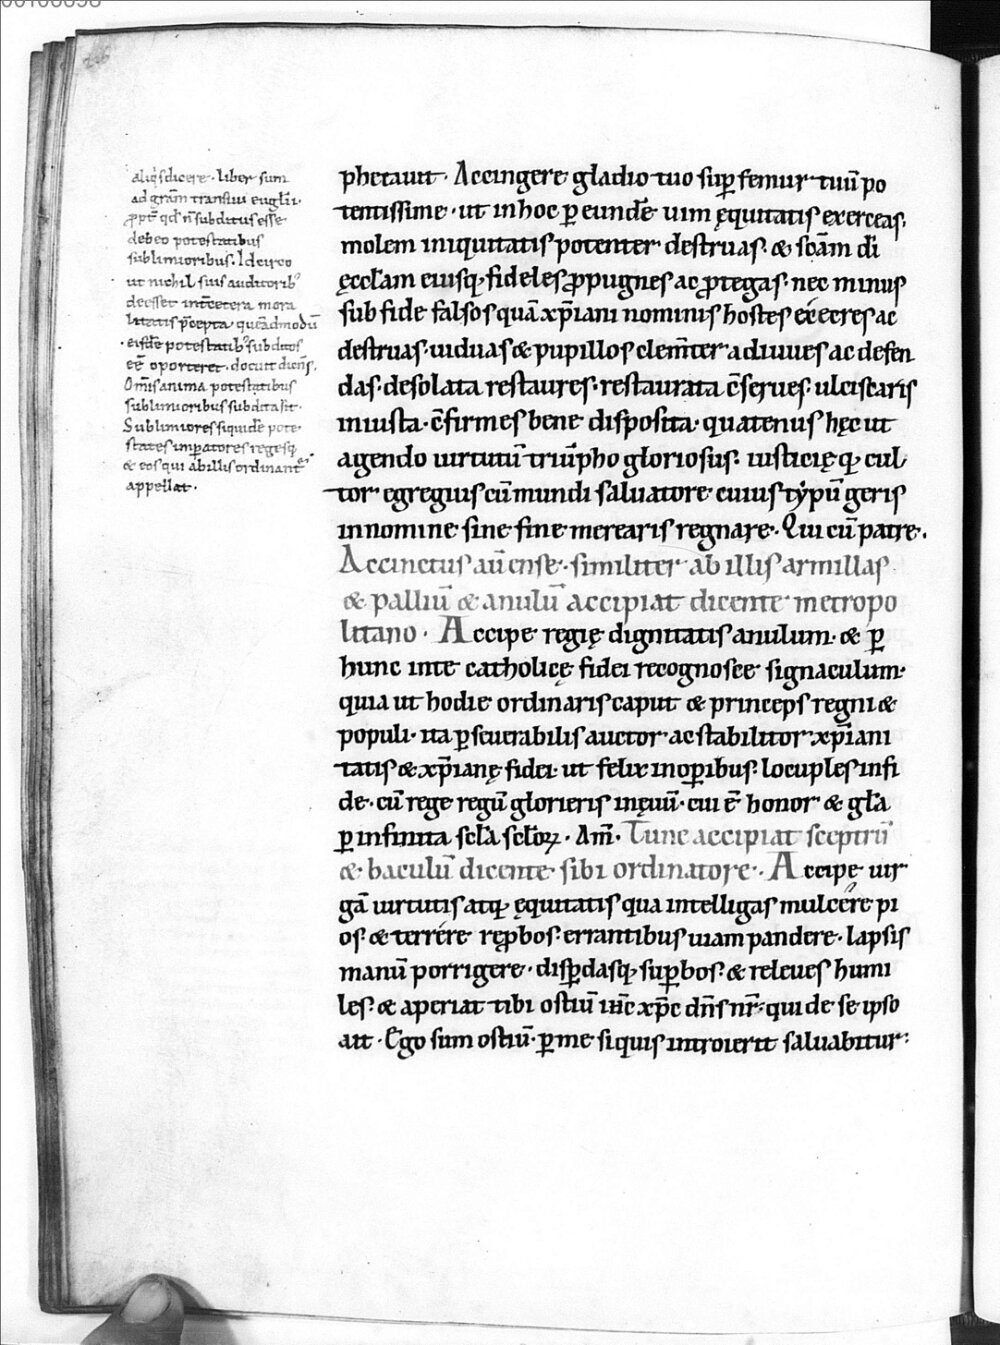 aliq̇s dicere · liber sum
ad grām transiui eugl̄ii ·
ꝓpt̄ qđ n̄ subditus esse
debeo potestatibus
sublimioribus. Idcirco
ut nichil suis auditorib;
deesset int̄ cetera mora
litatis p̄cepta quēadmodū
eisdē potestatib; subditos
eē oporteret · docuit dicēs.
Om̄is anima potestatibus
sublimioribus subdita sit ·
Sublimiores siquidē pote
states imꝑatores regesq;
& eos qui ab illis ordinant᷑
appellat ·
phetauit · Accingere gladio tuo suꝑ femur tuū po
tentissime · ut in hoc ꝑ eundē uim ęquitatis exerceas.
molem iniquitatis potenter destruas. & sc̄am dī
ęcclam eiusq; fideles ꝓpugnes ac ꝓtegas. nec minus
sub fide falsos quā xp̄iani nominis hostes exécres ac
destruas. uiduas & pupillos clem̄ter adiuues ac defen
das. desolata restaures. restaurata c̄serues. ulciscaris
iniusta. c̄firmes bene disposita. quatenus hęc ut
agendo uirtutū triūpho gloriosus. iusticięq; cul
tor egregius cū mundi saluatore cuius typū geris
in nomine sine fine merearis regnare. Qui cū patre.
Accinctus aū ense · similiter ab illis armillas
& palliū & anulū accipiat dicente metropo
litano · Accipe regię dignitatis anulum. & ꝑ
hunc in te catholicę fidei recognosce signaculum.
quia ut hodie ordinaris caput & princeps regni &
populi. ita ꝑseuerabilis auctor ac stabilitor xp̄iani
tatis & xp̄ianę fidei. ut felix in oꝑibus. locuples in fi
de. cū rege regū glorieris in ęuū. cui ē honor & gl̄a
ꝑ infinita scl̄a scl̄oꝝ. Am̄. Tunc accipiat sceptrū
& baculū dicente sibi ordinatore. Accipe uir
gā uirtutis atq; ęquitatis qua intelligas mulcére pi
os. & terrére reꝓbos. errantibus uiam pandere. lapsis
manū porrigere. disꝑdasq; suꝑbos. & releues humi
les. & aperiat tibi ostiū ih̄c xp̄c dn̄s nr̄. qui de se ipso
ait. Ego sum ostiū. ꝑ me si quis introierit saluabitur.